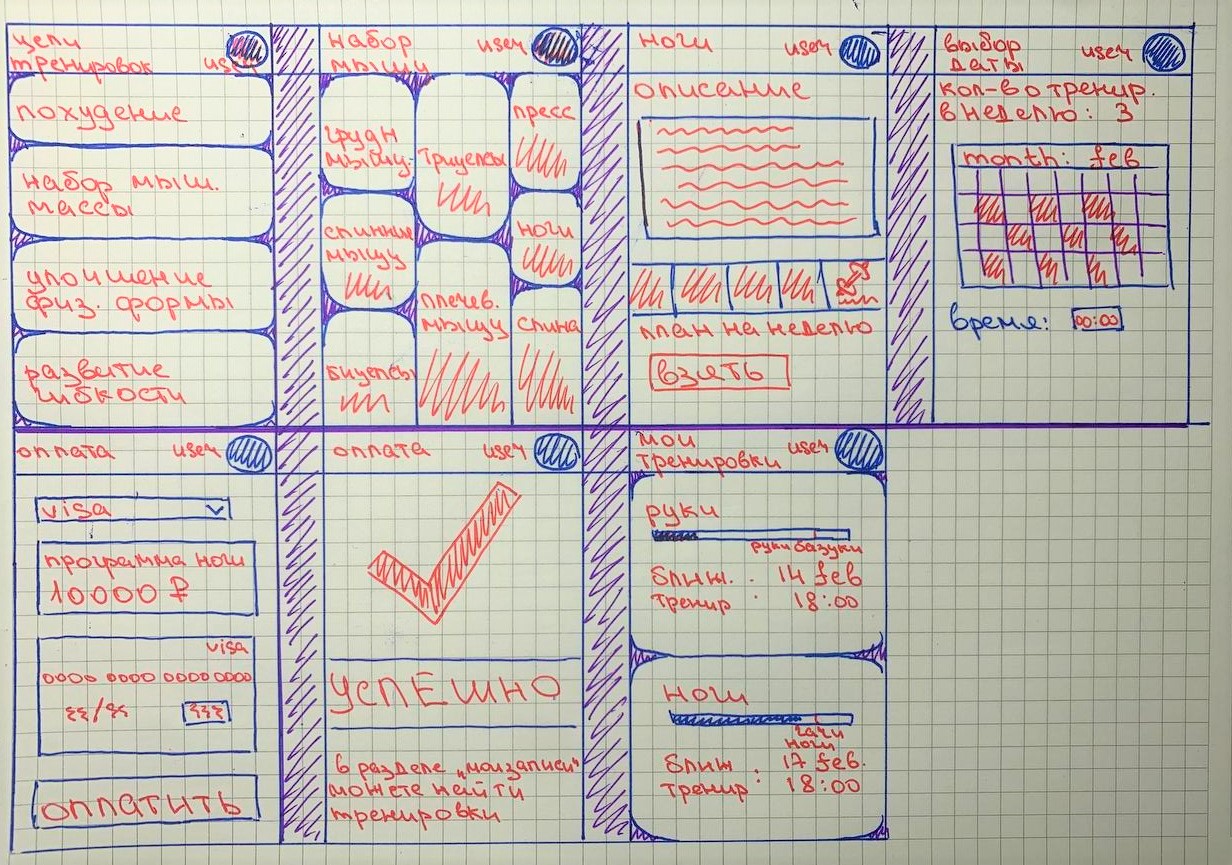 цели
тренировок user
похудение
набор мыш.
массы
улочшение
физ. формы
развитие
гибкости
набор user
мышц
грудн
мышцы.
спинные
мышцы
бицепсы
трицепсы
плечев.
мышцы
пресс
ноги
спина
ноги user
описание
план на неделю
взять
выбор user
даты
кол-во тренир.
в неделю: 3
month: feb
время: 00:00
оплата user
visa
программа ноги
10000 ₽
visa
0000 0000 0000 0000
оплатить
оплата user
УСПЕШНО
в разделе „мои записи"
можете найти
тренировки
мои user
тренировки
руки
руки базуки
ближ. : 14 feb
тренир : 18:00
ноги
ноги
ближ : 17 feb.
тренир : 18:00